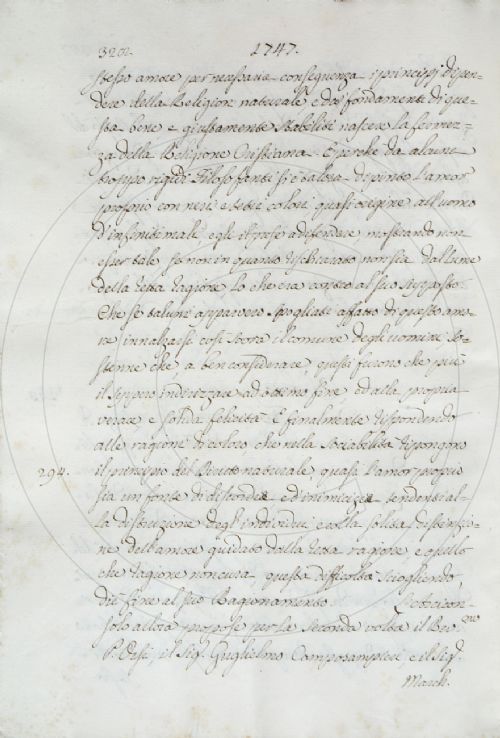 3202. 1747.
stesso amore per necessaria conseguenza i principj dipen-
dere della Religion naturale, e da' fondamenti di que-
sta bene e giustamente stabiliti nascere la fermez-
za della Religione Cristiana. E perchè da alcuni
troppo rigidi Filosofanti si è talora dipinto l'amor
proprio con neri e tetri colori, quasi origine all'uomo
d'infiniti mali, egli il prese a difendere, mostrando non
esser tale se non in quanto rischiarato non sia dal lume
della retta ragione, lo che era contro al suo supposto.
Che se taluni apparvero spogliati affatto di questo amo-
re innalzarsi così sovra il comune degli uomini, so-
stenne che a ben considerare, questi furono che più
il seppero indirizzare ad ottimo fine, ed alla propria
verace e soda felicità. E finalmente rispondendo
alle ragioni di coloro, che nella sociabilità ripongono
294. il principio del Diritto naturale, quasi l'amor proprio
sia un fonte di discordie ed inimicizie tendenti al-
la distruzione degl'individui, colla solita distinzio-
ne dell'amore guidato dalla retta ragione, e quello
che ragione non cura, questa difficoltà sciogliendo,
diè fine al suo Ragionamento. L'Arcicon-
solo allora propose per la seconda volta il Rev.mo
P. Orsi, il Sig. Guglielmo Camposampieri e il Sig.
March.